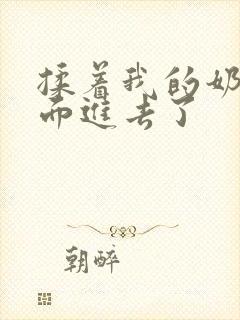 揉着我的奶
而进去了
朝醉